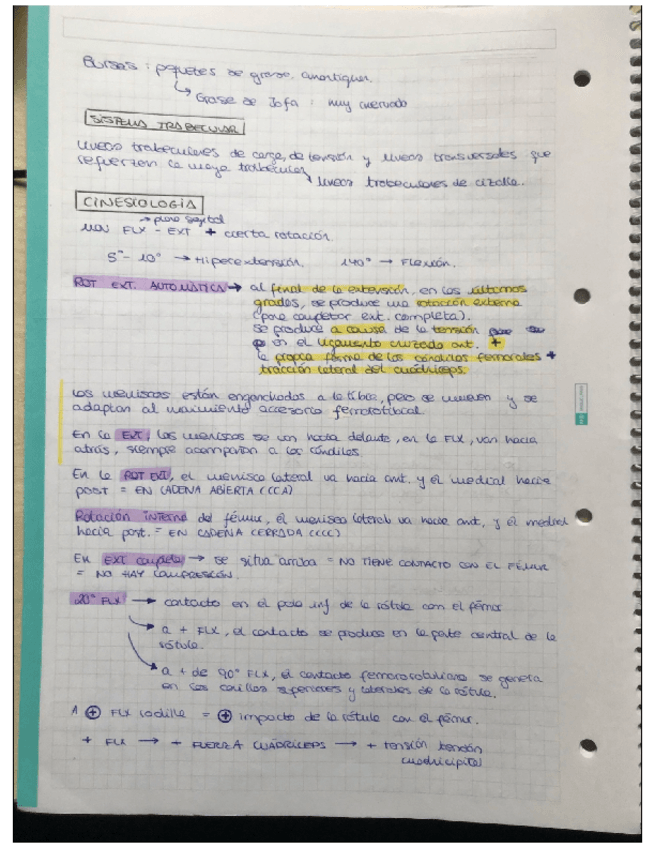 Bursas : paquetes de grasa, amortiguan.
↳ Grasa de Jofa : muy inervada
SISTEMA TRABECULAR
líneas trabeculares de carga, de tensión y líneas transversales que
refuerzan la malla trabecular
↘ líneas trabeculares de cizalla.
CINESIOLOGIA
→ plano sagital
MOV FLX - EXT + cierta rotación.
5° - 10° → Hiperextensión. 140° → Flexión.
ROT EXT. AUTOMÁTICA → al final de la extensión, en los últimos
grados, se produce una rotación externa
(para completar ext. completa).
se produce a causa de la tensión
en el ligamento cruzado ant. +
la propia forma de los cóndilos femorales +
tracción lateral del cuádriceps.
Los meniscos están enganchados a la tibia, pero se mueven y se
adaptan al movimiento accesorio femorotibial.
En la EXT, los meniscos se van hacia delante, en la FLX, van hacia
atrás, siempre acompañan a los cóndilos.
En la ROT EXT, el menisco lateral va hacia ant. y el medial hacia
post = EN CADENA ABIERTA (CCA)
Rotación INTERNA del fémur, el menisco lateral va hacia ant, y el medial
hacia post. = EN CADENA CERRADA (CCC)
EN EXT completa → se situa arriba = NO TIENE CONTACTO CON EL FÉMUR
= NO HAY COMPRESIÓN.
20° FLX → contacto en el polo inf. de la rótula con el fémur
→ a + FLX, el contacto se produce en la parte central de la
rótula.
→ a + de 90° FLX, el contacto femororotuliano se genera
en las carillas superiores y laterales de la rótula.
A ⊕ FLX rodilla = ⊕ impacto de la rótula con el fémur.
+ FLX → + FUERZA CUÁDRICEPS → + tensión tendón
cuadricipital